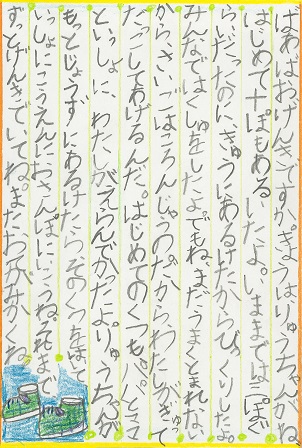 ばあばおげんきですか。きょうはりゅうちゃんがね
はじめて十ぽもあるいたよ。いままでは二ほぐ
らいだったのにきゅうにあるけたからびっくりしたよ。
みんなではくしゅをしたよ。でもねまだうまくとまれない
からさいごはころんじゃうのだからわたしがぎゅっ
だっこしてあげるんだ。はじめてのくつもパパとママ
といっしょにわたしがえらんでかったよ。りゅうちゃんが
もっとじょうずにあるけたらそのくつをはいて
いっしょにこうえんにおさんぽにいこうね。それまで
ずっとげんきでいてね。またおてがみかくね